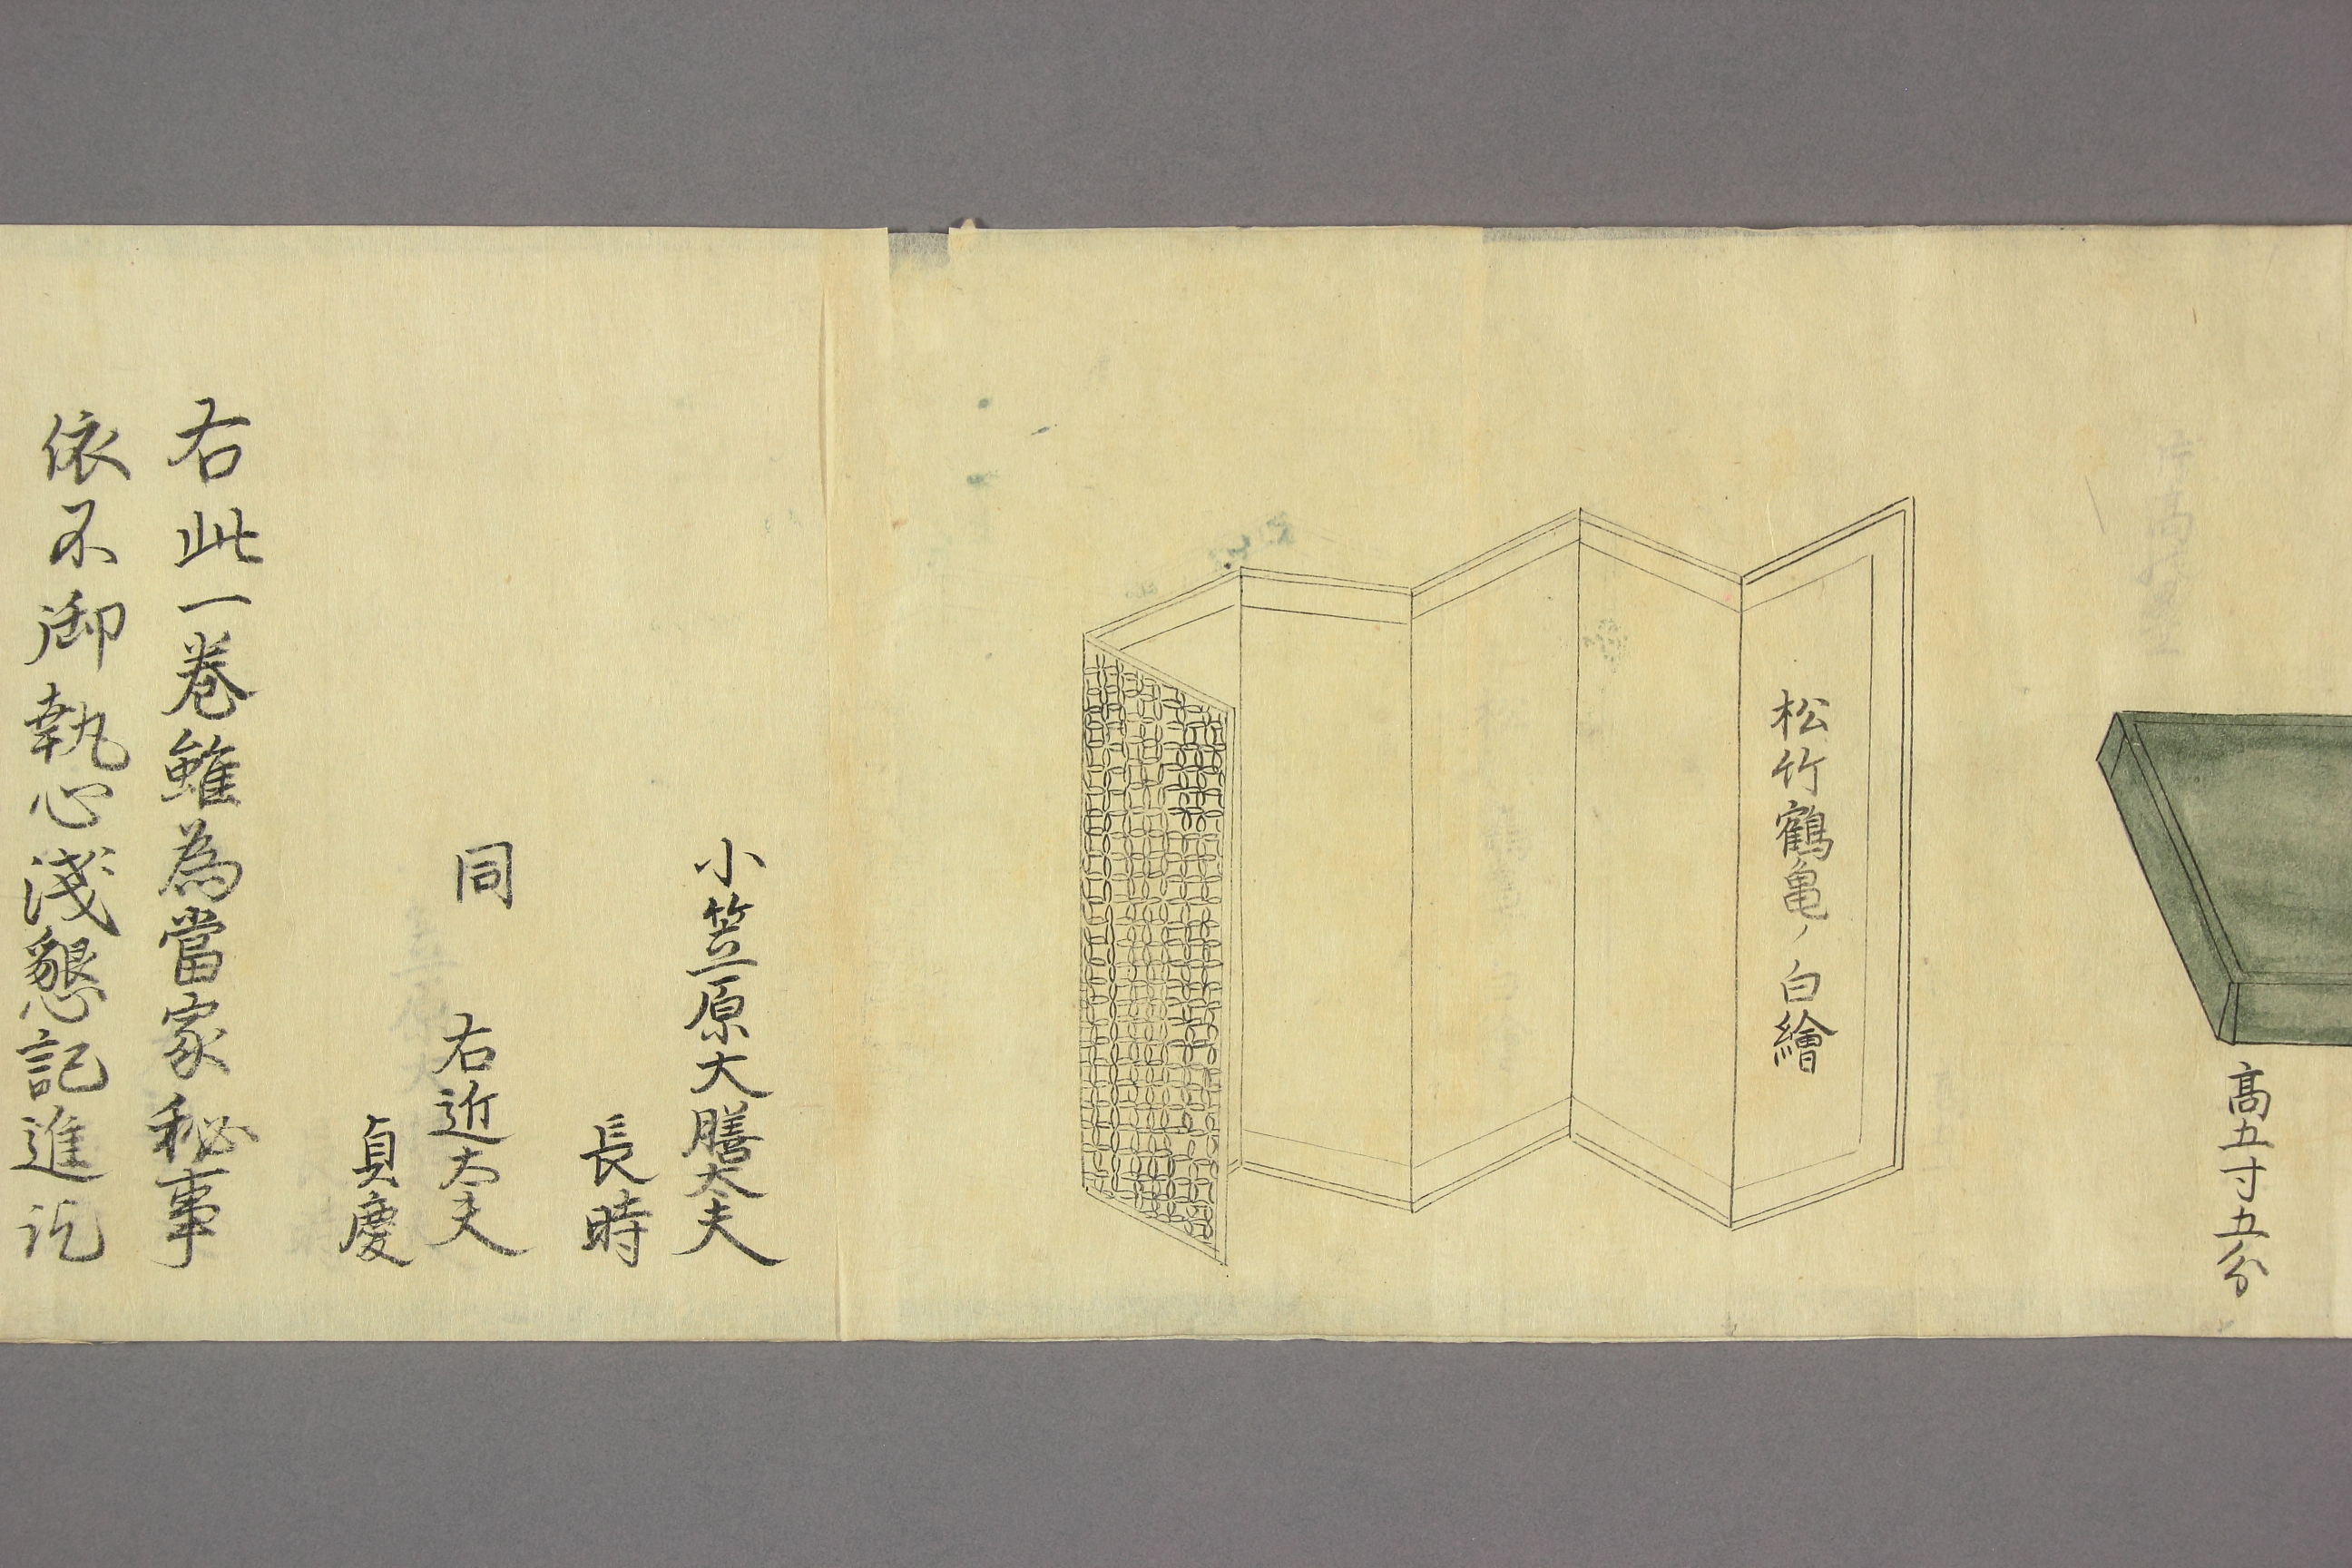 高五寸五分
松竹鶴亀ノ白繪
小笠原大膳太夫
長時
同 右近太夫
貞慶
右此一巻雖為當家秘事
依不御執心淺懇記進訖